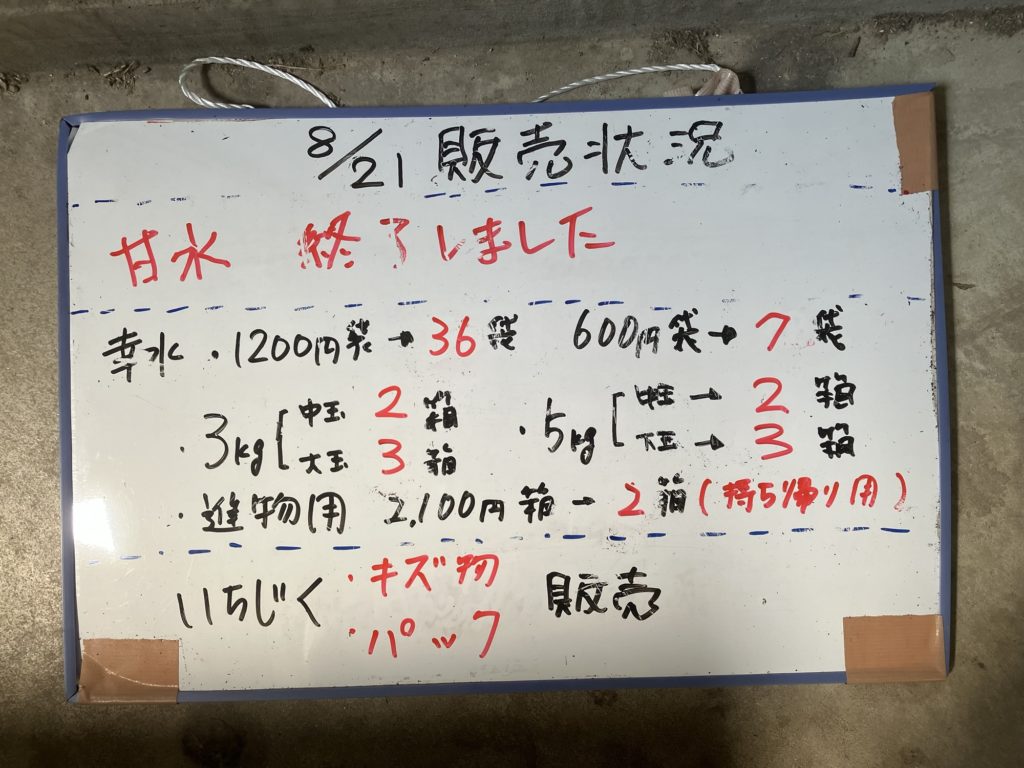 8/21 販売状況
甘水 終了しました
幸水 ・1200円袋→36袋 600円袋→7袋
・3kg[中玉 2箱 ・5kg[中玉→2箱
大玉 3箱 大玉→3箱
・進物用 2,100円箱→2箱(持ち帰り用)
いちじく ・キズ物 販売
・パック